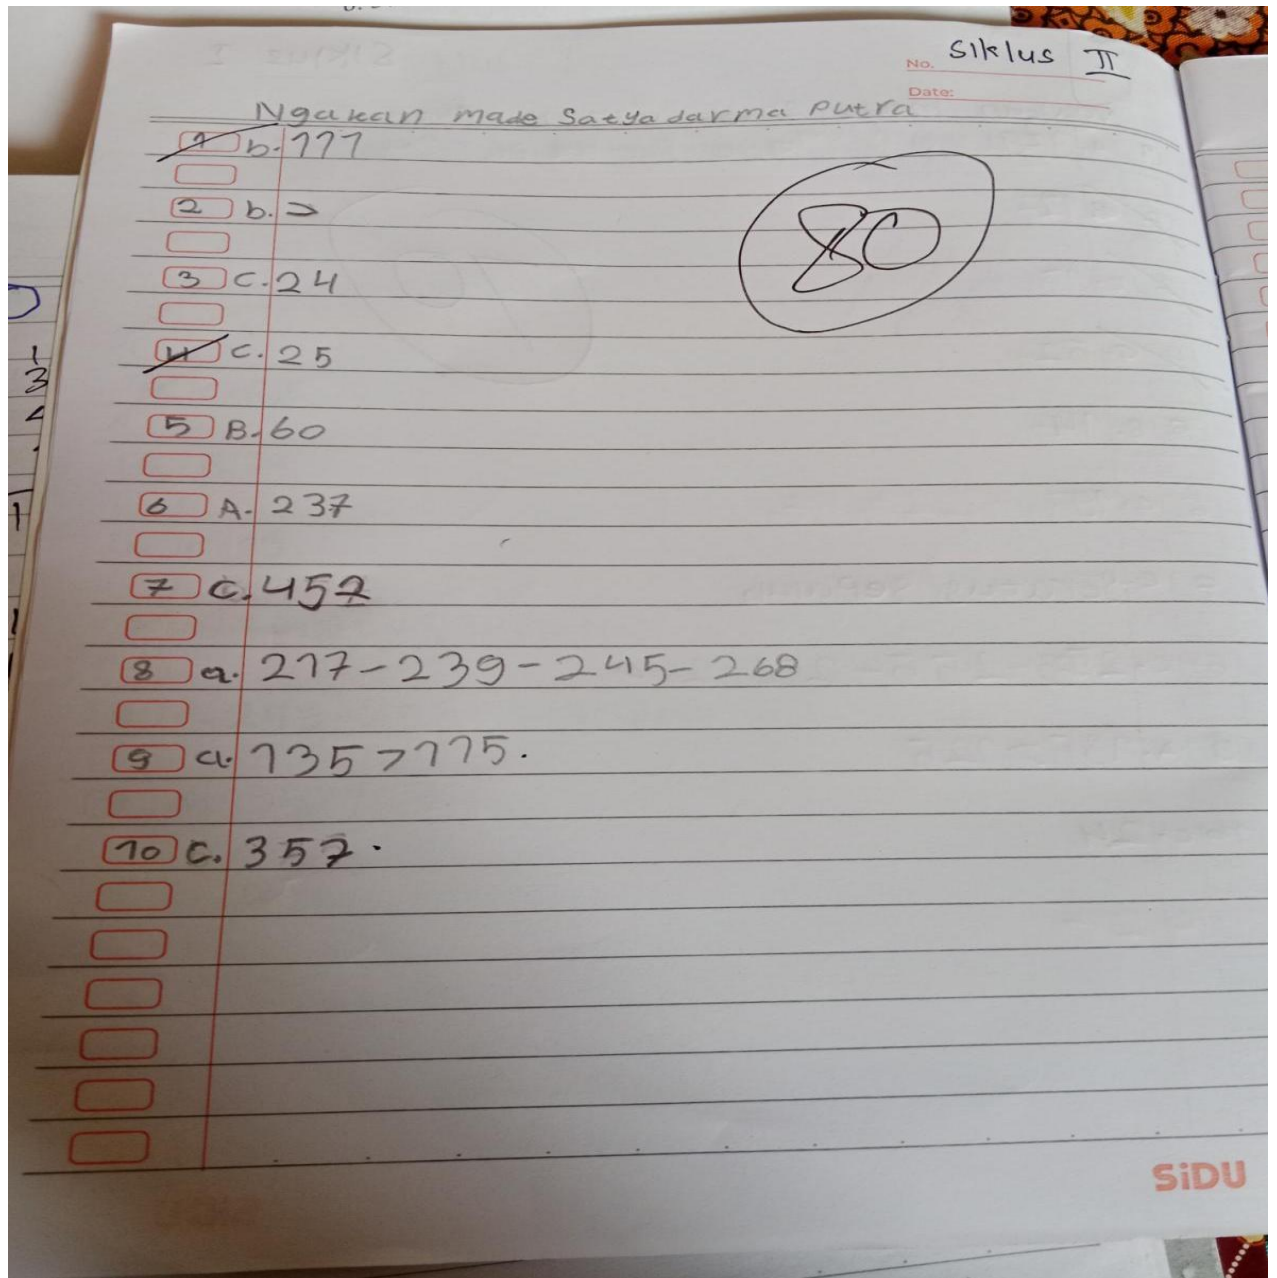 Siklus II
No.
Date:
Ngakan made Satyadarma Putra
1 b. 111
2 b. >
80
3 C. 24
4 C. 25
5 B. 60
6 A. 237
7 C. 457
8 a. 217 - 239 - 245 - 268
9 a. 135 > 115.
10 C. 357.
SiDU